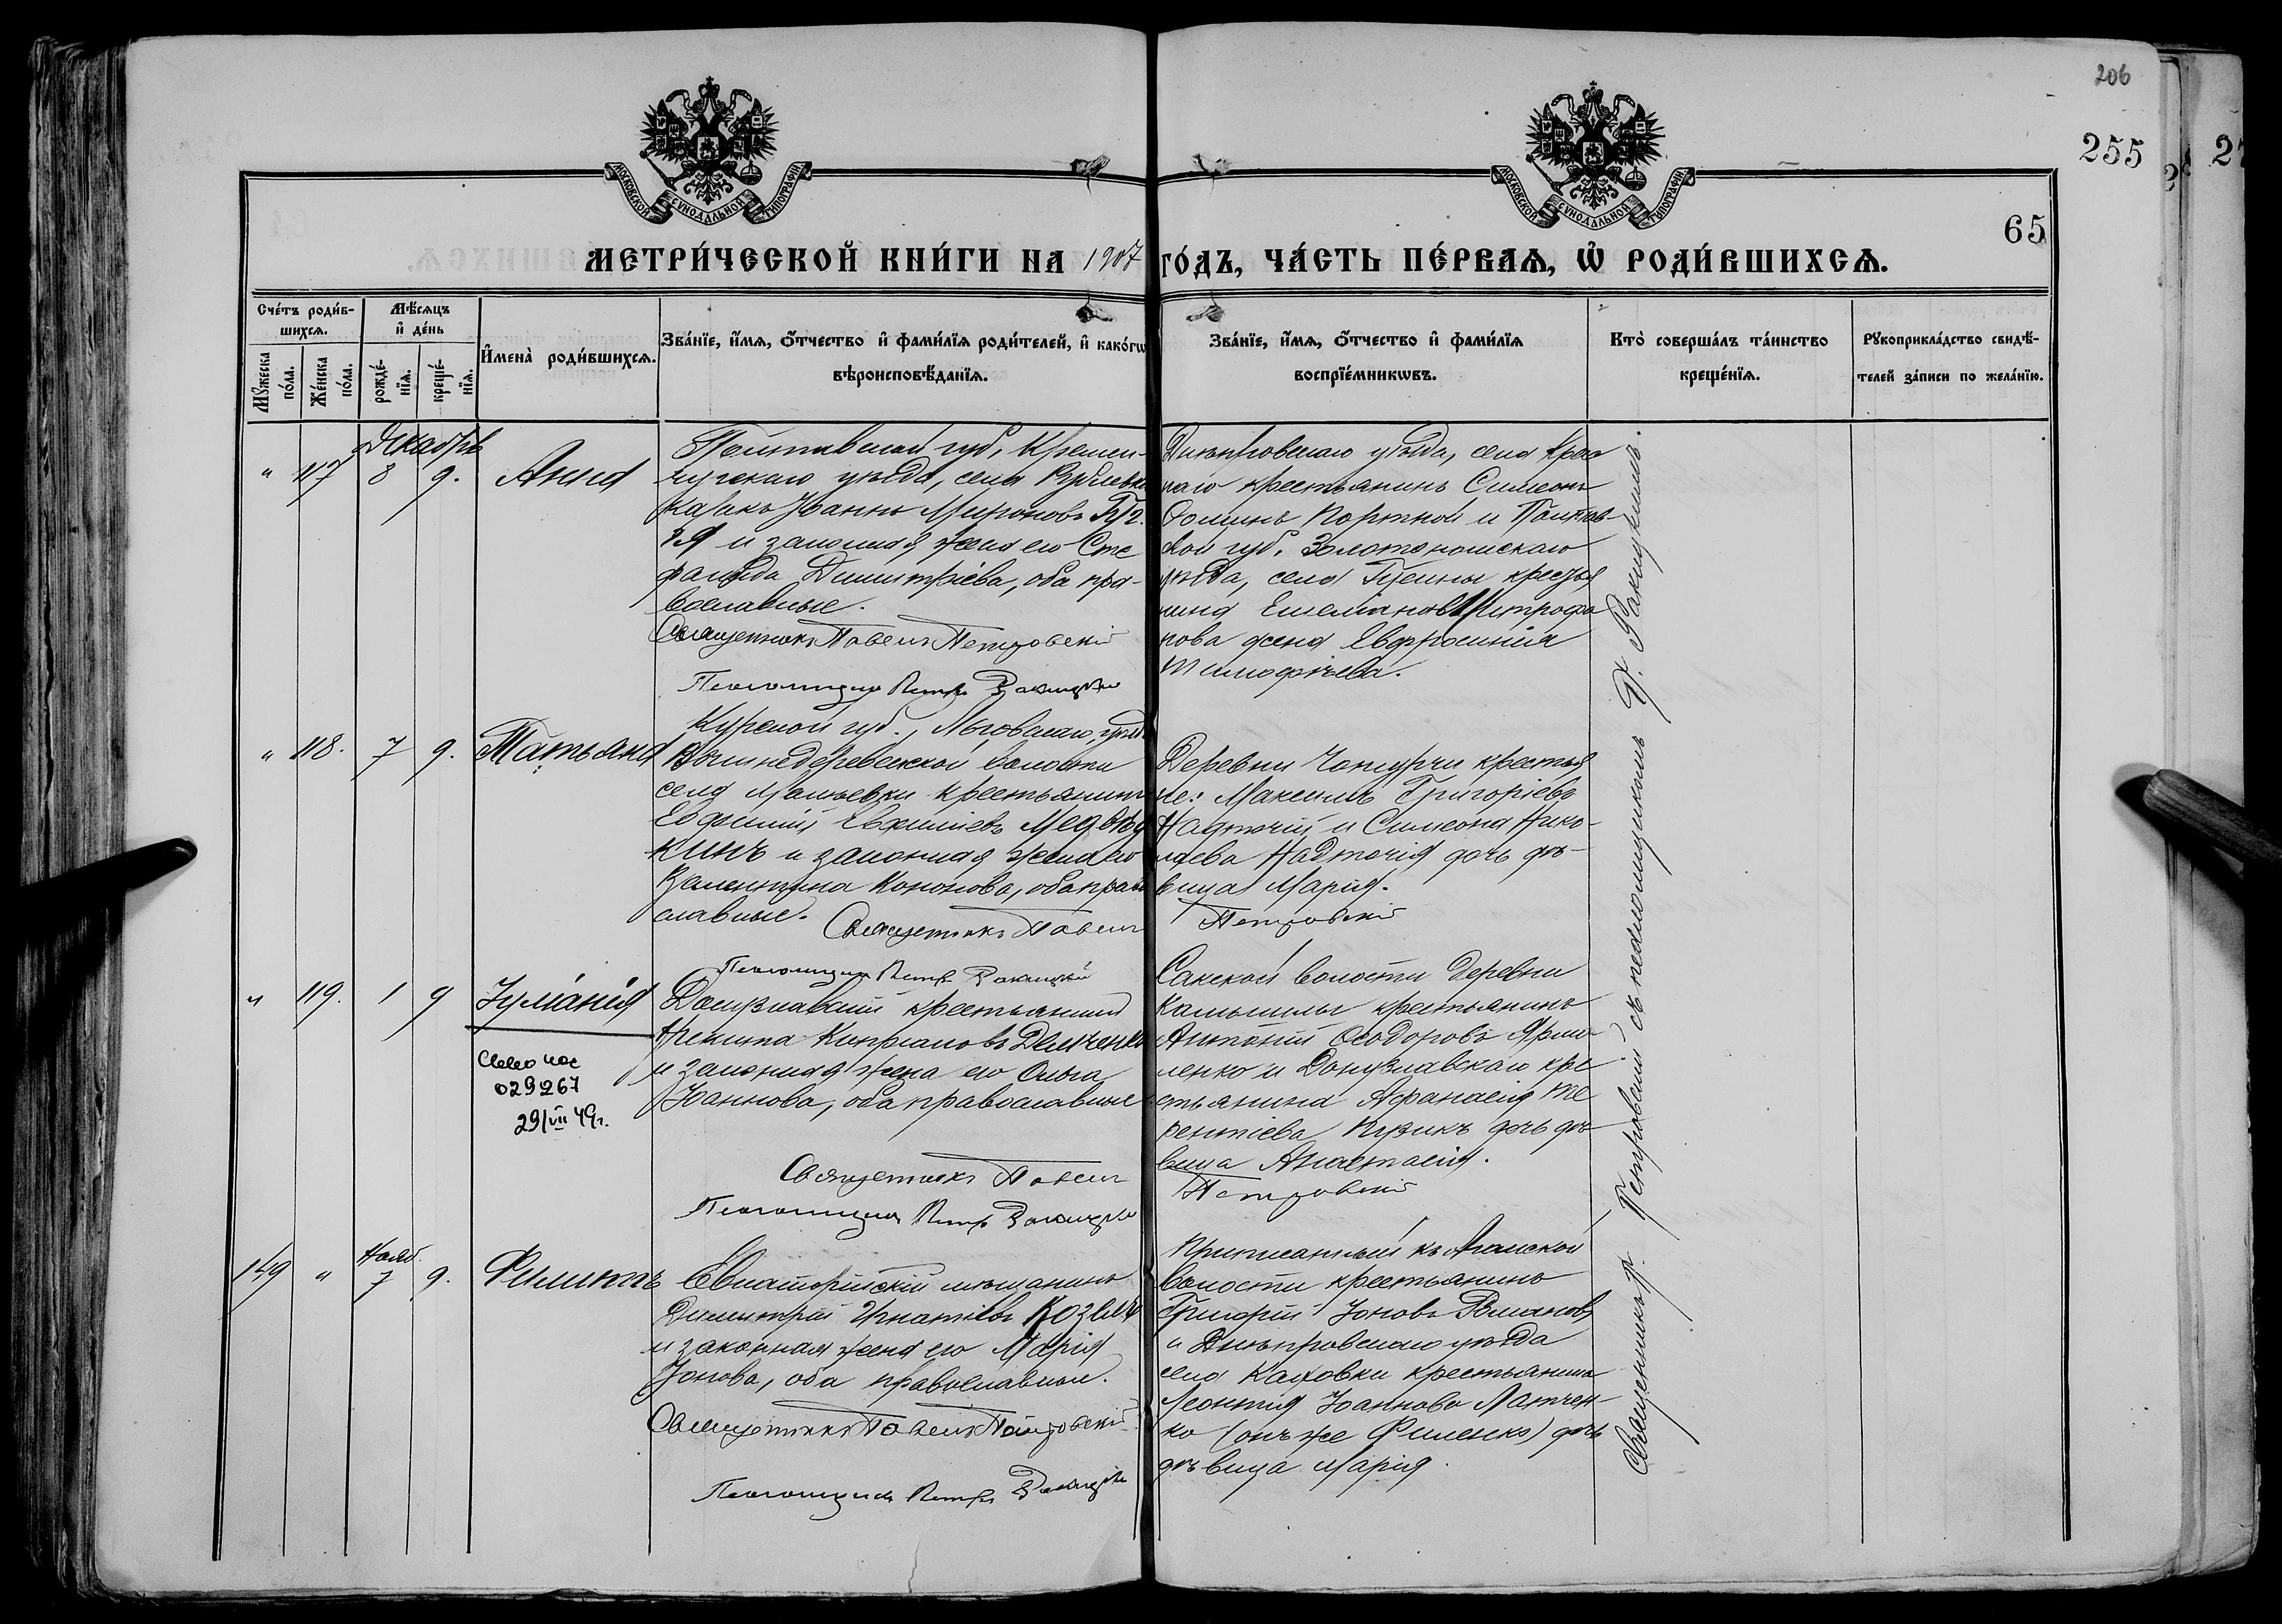 206
255
65
МОСКОВСКОЙ СѴНОДАЛЬНОЙ ТИПОГРАФІИ
МОСКОВСКОЙ СѴНОДАЛЬНОЙ ТИПОГРАФІИ
МЕТРИ́ЧЕСКОЙ КНИ́ГИ НА 1907 ГО́ДЪ, ЧА́СТЬ ПЕ́РВАѦ, Ѡ҆ РОДИ́ВШИХСѦ.
Сче́тъ роди́в-
шихсѧ.
Мꙋжеска
по́ла.
Же́нска
по́ла.
Мѣ́сѧцъ
и҆ де́нь
рожде́-
нїѧ.
креще́-
нїѧ.
И҆мена̀ роди́вшихсѧ.
Зва́нїе, и҆́мѧ, ѻ҆́тчество и҆ фами́лїѧ роди́телей, и҆ како́гѡ
вѣроисповѣ́данїѧ.
Зва́нїе, и҆́мѧ, ѻ҆́тчество и҆ фами́лїѧ
воспрїе́мникѡвъ.
Кто̀ соверша́лъ та́инство
креще́нїѧ.
Рꙋкоприкла́дство свидѣ́-
телей за́писи по жела́нїю.
Декабрь
" 117 8 9. Анна
Полтавской губ., Кремен-
чугскаго уѣзда, села
Козакъ Іоаннъ Мироновъ
и законная жена его Сте
фанида Димитріева, оба пра-
вославные.
Священникъ Павелъ Петровскій
Псаломщикъ Петръ Ракицкій
Днѣпровскаго уѣзда, села
крестьянинъ Симеонъ
Ѳоминъ Портной и Полтав-
ской губ. Золотоношскаго
уѣзда, села крестья
нина Емеліана Митрофа
нова жена Евфросинія
Тимоѳѣева.
" 118. 7 9. Татьяна
Курской губ., Льговскаго уѣзда
Вышнедеревенской волости
села крестьянинъ
Евфимій Евфиміевъ Медвѣд
кинъ и законная жена его
Валентина Кононова, оба право
славные.
Священникъ Павелъ Петровскій
Псаломщикъ Петръ Ракицкій
Деревни крестья
не: Максимъ Григоріевъ
Надточій и Симеона Нико-
лаева Надточія дочь дѣ-
вица Марія.
" 119. 1 9 Іуліанія
029267
29/VII 49г.
Донузлавскій крестьянинъ
Никита Кипріановъ Демченко
и законная жена его Ольга
Іоаннова, оба православные
Священникъ Павелъ Петровскій
Псаломщикъ Петръ Ракицкій
Сакской волости деревни
крестьянинъ
Антоній Ѳеодоровъ Ярмо
ленко и Донузлавскаго кре
стьянина Аѳанасія Те
рентіева Пузикъ дочь дѣ
вица Анастасія.
Нояб.
149 " 7 9. Филиппъ
Евпаторійскій мѣщанинъ
Димитрій Игнатіевъ
и законная жена его Марія
Іонова, оба православные.
Священникъ Павелъ Петровскій
Псаломщикъ Петръ Ракицкій
Приписанный къ волости крестьянинъ
Григорій Іоновъ Романовъ
и Днѣпровскаго уѣзда
села Каховки крестьянина
Леонтія Іоаннова
(онъ же Филенко) дочь
дѣвица Марія.
Священникъ П. Петровскій съ псаломщикомъ П. Ракицкимъ.